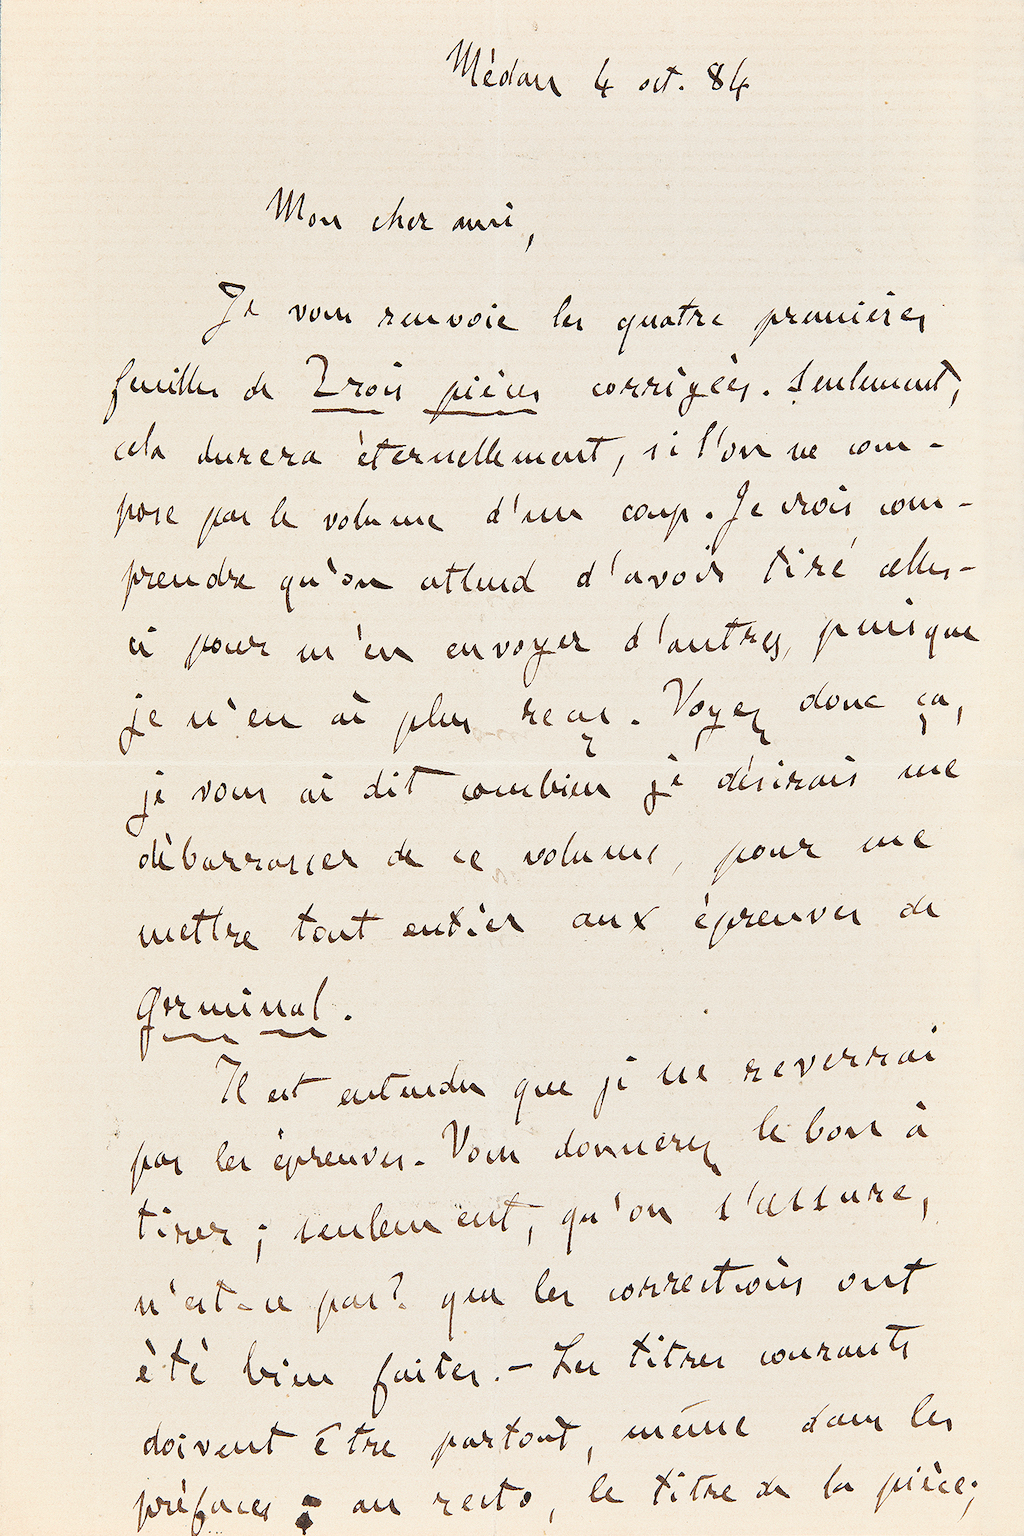 Médan 4 oct. 84
Mon cher ami,
Je vous renvoie les quatre premières
feuilles de Trois pièces corrigées. Seulement,
cela durera éternellement, si l'on ne com-
pose pas le volume d'un coup. Je crois com-
prendre qu'on attend d'avoir tiré celles-
ci pour m'en envoyer d'autres, puisque
je n'en ai plus reçu. Voyez donc ça,
je vous ai dit combien je désirais me
débarrasser de ce volume, pour me
mettre tout entier aux épreuves de
Germinal.
Il est entendu que je ne reverrai
pas les épreuves. Vous donnerez le bon à
tirer ; seulement, qu'on s'assure,
n'est-ce pas? que les corrections ont
été bien faites. – Les titres courants
doivent être partout, même dans les
préfaces ; au recto, le titre de la pièce;